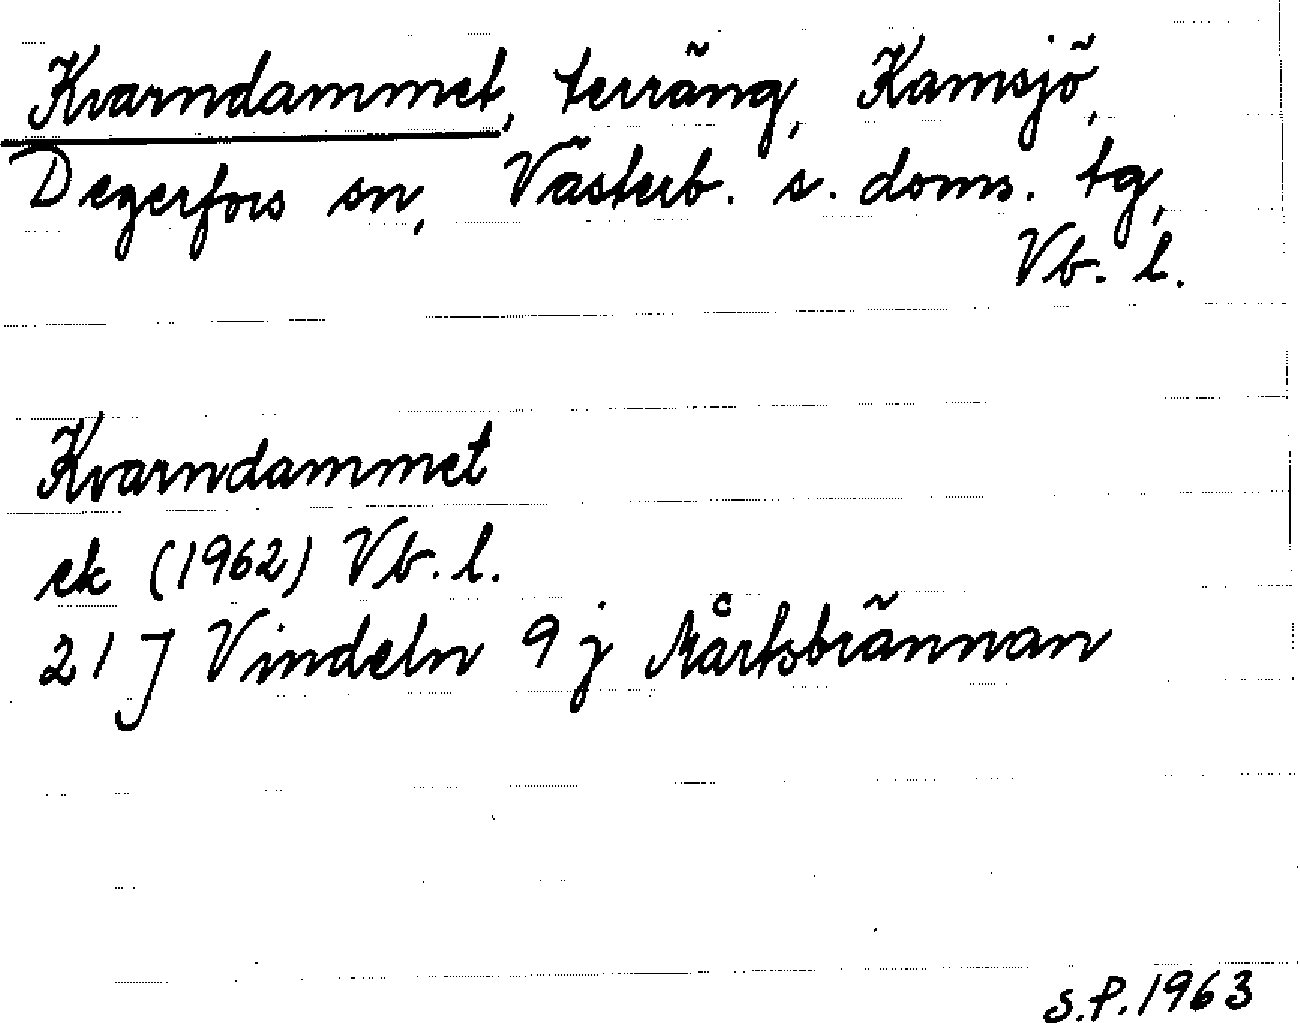 Kvarndammet, terräng, Kamsjö,
Degerfors sn, Västerb. s. doms. tg,
Vb. l.
Kvarndammet
ek (1962) Vb. l.
21 J Vindeln 9 j Mårtsbrännan
S.P. 1963